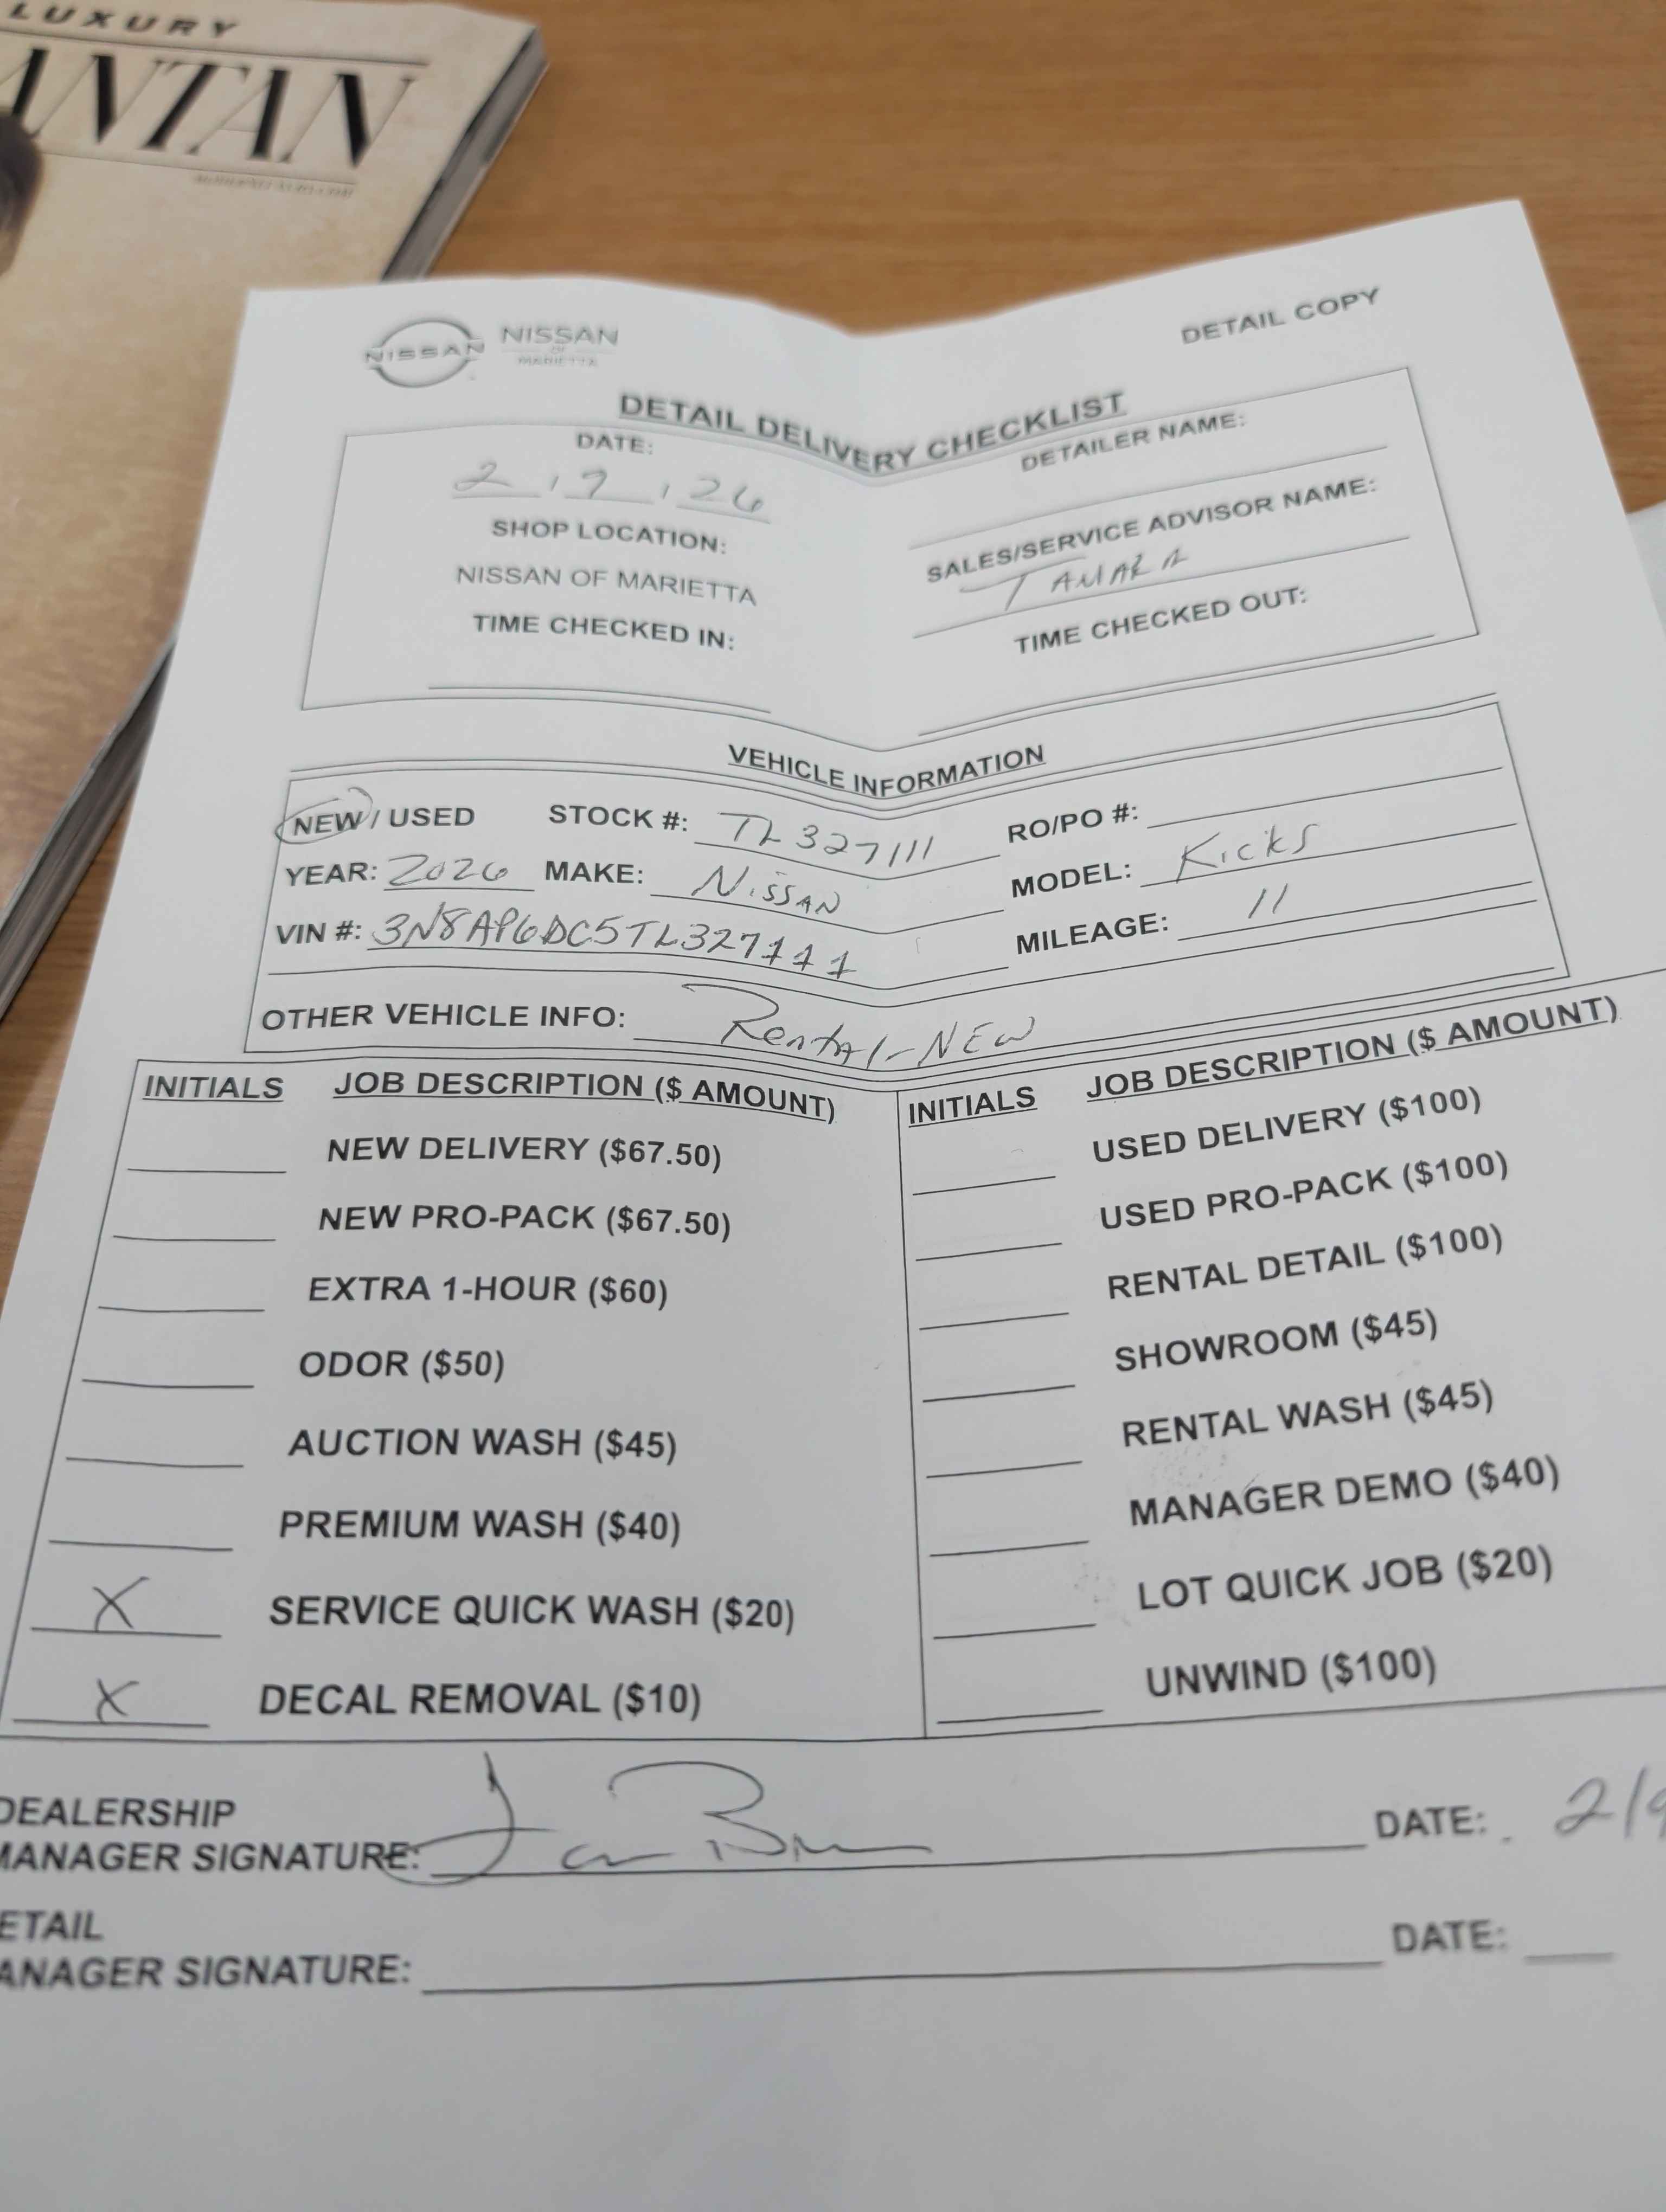 LUXURY
ANTAN
NISSAN
NISSAN
OF
MARIETTA
DETAIL COPY
DETAIL DELIVERY CHECKLIST
DATE:
DETAILER NAME:
SHOP LOCATION:
SALES/SERVICE ADVISOR NAME:
NISSAN OF MARIETTA
TAMARA
TIME CHECKED IN:
TIME CHECKED OUT:
VEHICLE INFORMATION
NEW / USED STOCK #: TL327111 RO/PO #:
YEAR: 2026 MAKE: NiSSAN MODEL: Kicks
VIN #: 3N8AP6DC5TL327111 MILEAGE: 11
OTHER VEHICLE INFO: Rental-NEW
INITIALS JOB DESCRIPTION ($ AMOUNT) INITIALS JOB DESCRIPTION ($ AMOUNT)
NEW DELIVERY ($67.50) USED DELIVERY ($100)
NEW PRO-PACK ($67.50) USED PRO-PACK ($100)
EXTRA 1-HOUR ($60) RENTAL DETAIL ($100)
ODOR ($50) SHOWROOM ($45)
AUCTION WASH ($45) RENTAL WASH ($45)
PREMIUM WASH ($40) MANAGER DEMO ($40)
X SERVICE QUICK WASH ($20) LOT QUICK JOB ($20)
X DECAL REMOVAL ($10) UNWIND ($100)
DEALERSHIP
MANAGER SIGNATURE: DATE: 2/9
ETAIL
ANAGER SIGNATURE: DATE: